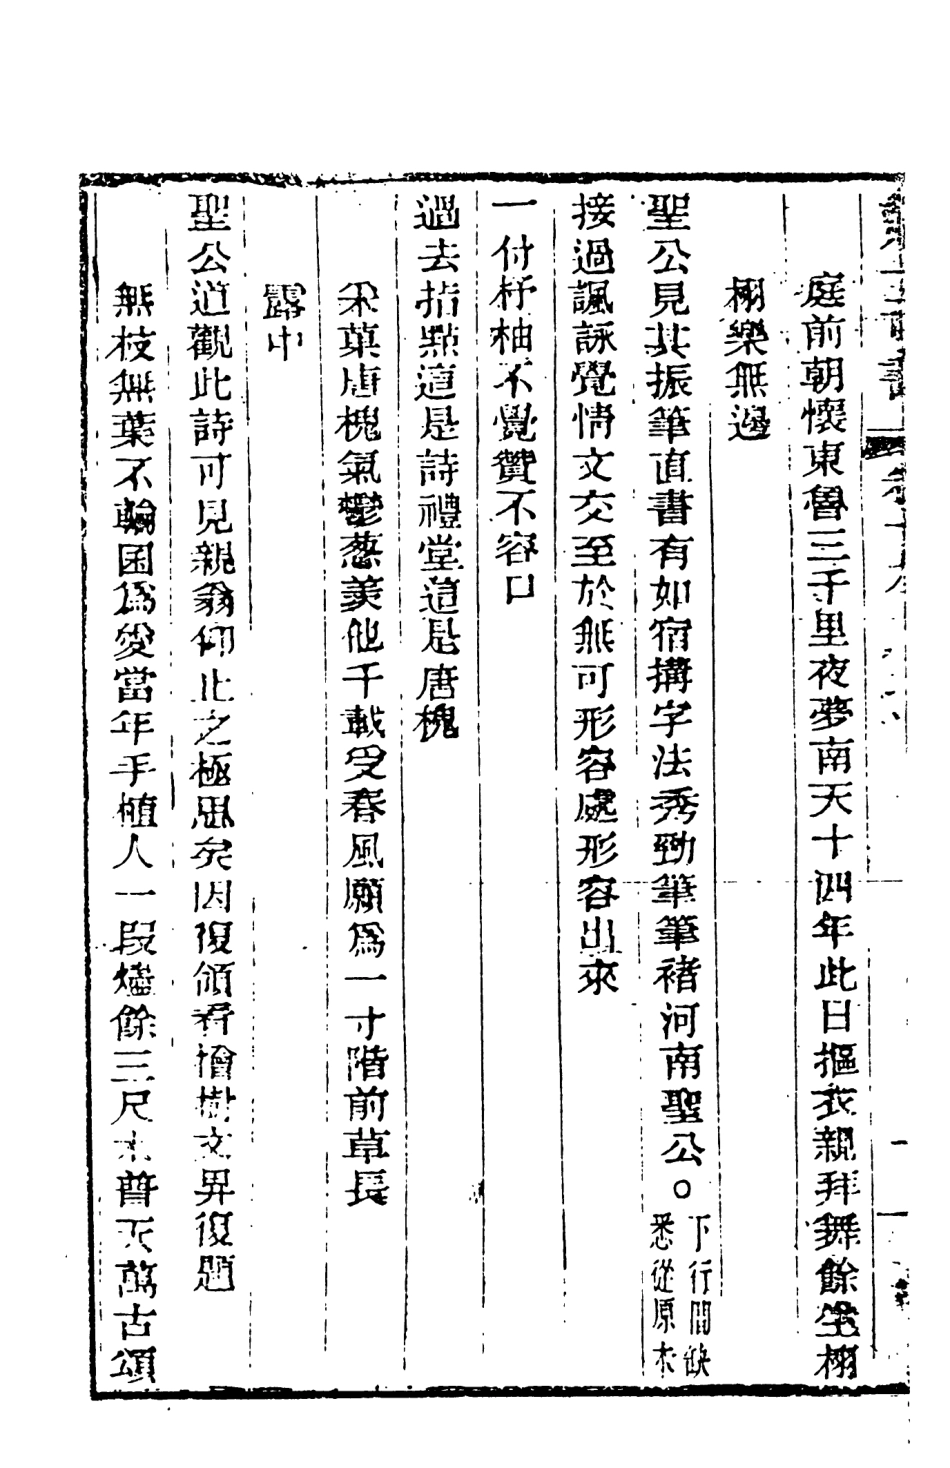 庭前朝懷東魯三千里夜夢南天十四年此日摳衣親拜舞餘生栩
栩樂無邊
聖公見其振筆直書有如宿搆字法秀勁筆筆褚河南聖公○下行間缺悉從原本
接過諷詠覺情文交至於無可形容處形容出來
一付杼柚不覺贊不容口
過去指點這是詩禮堂這是唐槐
采菓唐槐氣鬱葱羨他千載受春風願爲一寸階前草長
露中
聖公道觀此詩可見親翁仰止之極思矣因復領看檜樹文昇復題
無枝無葉不輪囷爲愛當年手植人一段燼餘三尺木普天萬古頌